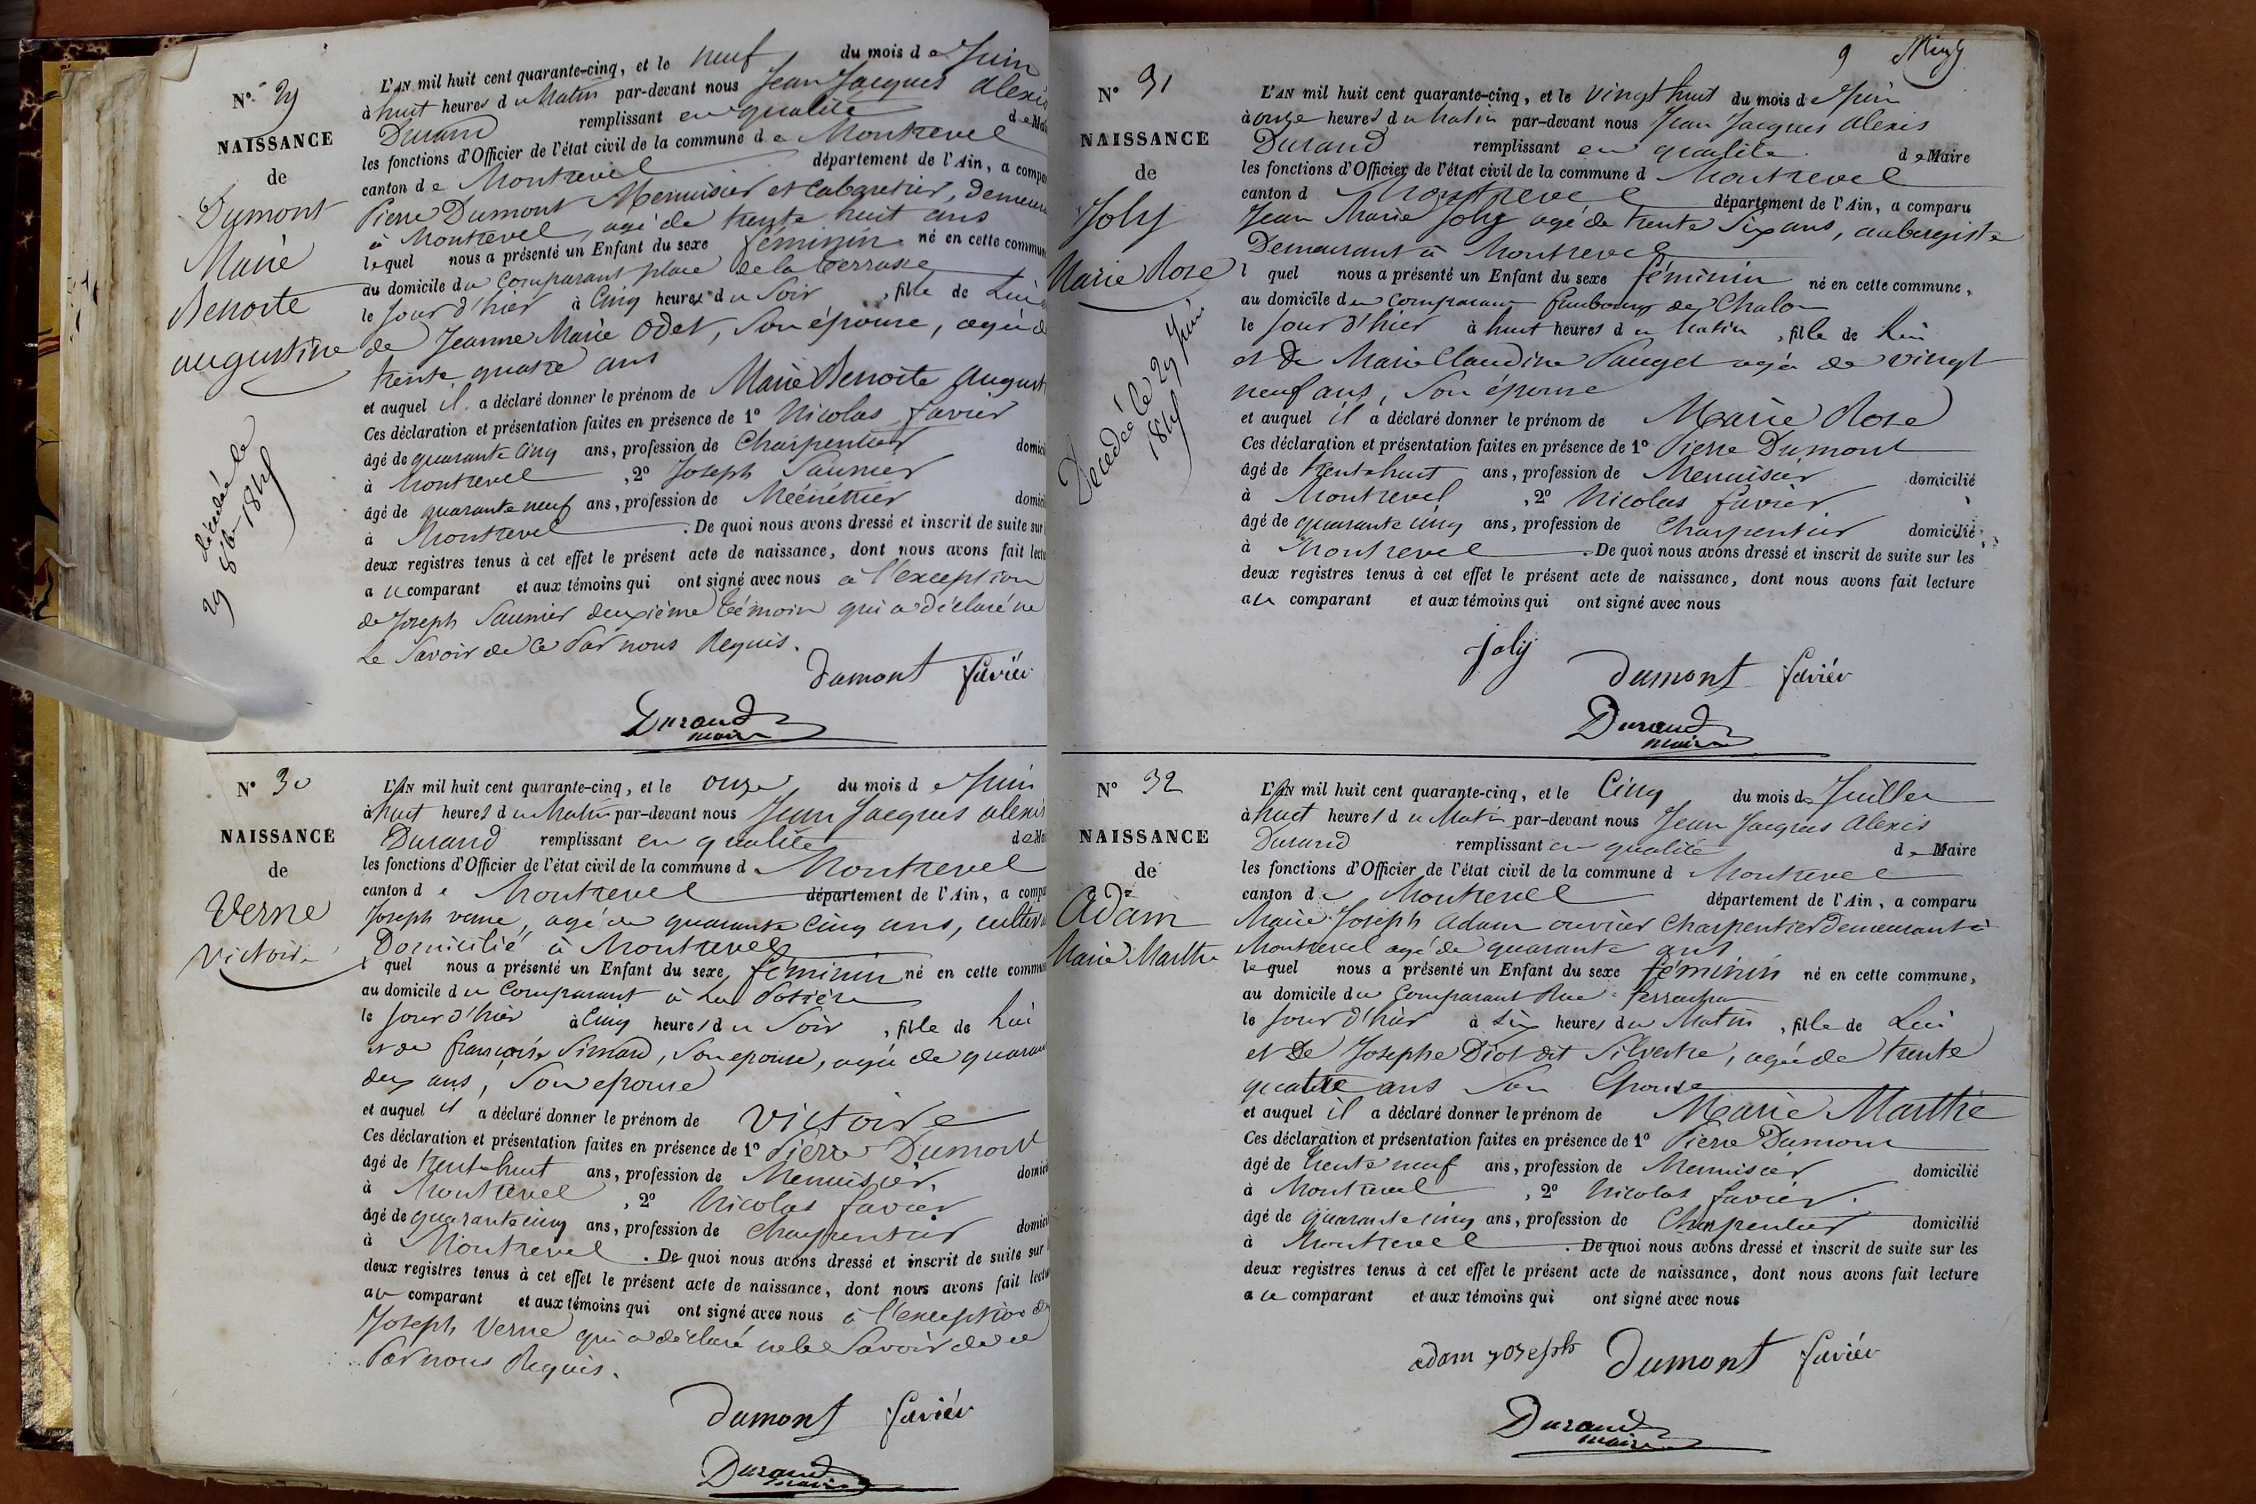 N° 29
NAISSANCE
de
Dumont
Marie
Benoite
augustine
décédée le
29 8bre 1845
L'AN mil huit cent quarante-cinq, et le neuf du mois de Juin
à huit heures du Matin par-devant nous Jean Jacques alexis
Durand remplissant en qualité de Mai
les fonctions d'Officier de l'état civil de la commune de Montrevel
canton de Montrevel département de l'Ain, a compa
Pierre Dumont Menuisier et Cabaretier, demeura
à Montrevel, agé de trente huit ans
lequel nous a présenté un Enfant du sexe féminin né en cette commun
au domicile du Comparant place de la terrasse
le jour d'hier à Cinq heures du Soir, fille de Lui
de Jeanne Marie Odet, Son épouse, agée de
trente quatre ans
et auquel il a déclaré donner le prénom de Marie Benoite August
Ces déclaration et présentation faites en présence de 1° Nicolas favier
âgé de quarante cinq ans, profession de Charpentier domici
à Montrevel, 2° Joseph Saunier
âgé de quarante neuf ans, profession de Ménétrier domici
à Montrevel. De quoi nous avons dressé et inscrit de suite sur
deux registres tenus à cet effet le présent acte de naissance, dont nous avons fait lectu
au comparant et aux témoins qui ont signé avec nous à l'exception
de Joseph Saunier deuxième témoin qui a déclaré ne
Le Savoir de ce Par nous Requis.
Dumont favier
Durand
maire
N° 30
NAISSANCE
de
Verne
Victoire
L'AN mil huit cent quarante-cinq, et le onze du mois de Juin
à huit heures du Matin par-devant nous Jean Jacques alexis
Durand remplissant en qualité de Mai
les fonctions d'Officier de l'état civil de la commune de Montrevel
canton de Montrevel département de l'Ain, a compa
Joseph verne, agé de quarante Cinq ans, cultiva
Domicilié à Montrevel
l quel nous a présenté un Enfant du sexe féminin né en cette commun
au domicile du Comparant à La
le Jour d'hier à Cinq heures du Soir, fille de Lui
et de françoise Simard, Son epouse, agée de quaran
deux ans, Son epouse
et auquel il a déclaré donner le prénom de Victoire
Ces déclaration et présentation faites en présence de 1° Pierre Dumont
âgé de trente huit ans, profession de Menuisier, domici
à Montrevel, 2° Nicolas favier
âgé de quarante cinq ans, profession de Charpentier domici
à Montrevel. De quoi nous avons dressé et inscrit de suite sur
deux registres tenus à cet effet le présent acte de naissance, dont nous avons fait lectu
au comparant et aux témoins qui ont signé avec nous à l'exception de
Joseph Verne qui a déclaré ne le Savoir de ce
Par nous Requis.
Dumont favier
Durand
maire
9
N° 31
NAISSANCE
de
Joly
Marie Rose
Decedée le 29 Juin
1845
L'AN mil huit cent quarante-cinq, et le vingt huit du mois de Juin
à onze heures du Matin par-devant nous Jean Jacques Alexis
Durand remplissant en qualité de Maire
les fonctions d'Officier de l'état civil de la commune d Montrevel
canton d Montrevel département de l'Ain, a comparu
Jean Marie Joly agé de trente Six ans, aubergiste
Demeurant à Montrevel
l quel nous a présenté un Enfant du sexe féminin né en cette commune,
au domicile du Comparant faubourg de Chalon
le Jour d'hier à huit heures du Matin, fille de Lui
et De Marie Claudine Pauget agée de vingt
neuf ans, Son épouse
et auquel il a déclaré donner le prénom de Marie Rose
Ces déclaration et présentation faites en présence de 1° Pierre Dumont
âgé de trente huit ans, profession de Menuisier domicilié
à Montrevel, 2° Nicolas favier
âgé de quarante cinq ans, profession de Charpentier domicilié
à Montrevel. De quoi nous avons dressé et inscrit de suite sur les
deux registres tenus à cet effet le présent acte de naissance, dont nous avons fait lecture
au comparant et aux témoins qui ont signé avec nous
joly
Dumont favier
Durand
maire
N° 32
NAISSANCE
de
Adam
Marie Marthe
L'AN mil huit cent quarante-cinq, et le Cinq du mois de Juillet
à huit heures du Matin par-devant nous Jean Jacques Alexis
Durand remplissant en qualité de Maire
les fonctions d'Officier de l'état civil de la commune d Montrevel
canton de Montrevel département de l'Ain, a comparu
Marie Joseph Adam ouvrier Charpentier Demeurant à
Montrevel agé de quarante ans
lequel nous a présenté un Enfant du sexe féminin né en cette commune,
au domicile du Comparant Rue
le Jour d'hier à Six heures du Matin, fille de Lui
et De Josephe Diot dit Silvestre, agée de trente
quatre ans Son Epouse
et auquel il a déclaré donner le prénom de Marie Marthe
Ces déclaration et présentation faites en présence de 1° Pierre Dumont
âgé de trente neuf ans, profession de Menuisier domicilié
à Montrevel, 2° Nicolas favier.
âgé de quarante cinq ans, profession de Charpentier domicilié
à Montrevel. De quoi nous avons dressé et inscrit de suite sur les
deux registres tenus à cet effet le présent acte de naissance, dont nous avons fait lecture
au comparant et aux témoins qui ont signé avec nous
adam joseph Dumont favier
Durand
maire